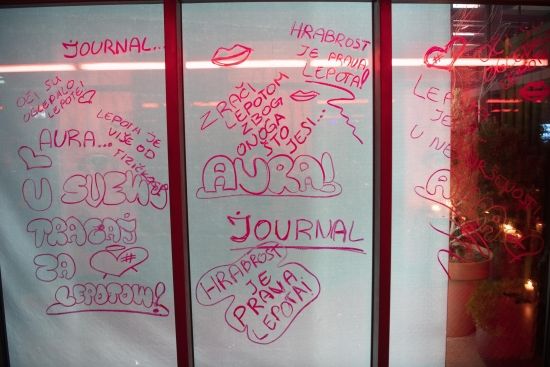 JOURNAL...
OČI SU
OGLEDALO
LEPOTE
AURA...
LEPOTA JE
VIŠE OD
FIZIČKOG
U SVEMU
TRAGAJ
ZA
LEPOTOM!
HRABROST
JE PRAVA
LEPOTA!
ZRAČI
LEPOTOM
ZBOG
ONOGA
ŠTO
JESI...
AURA!
JOURNAL
HRABROST
JE
PRAVA
LEPOTA!
LEPOTA
JE
U NESAVRŠENOSTI